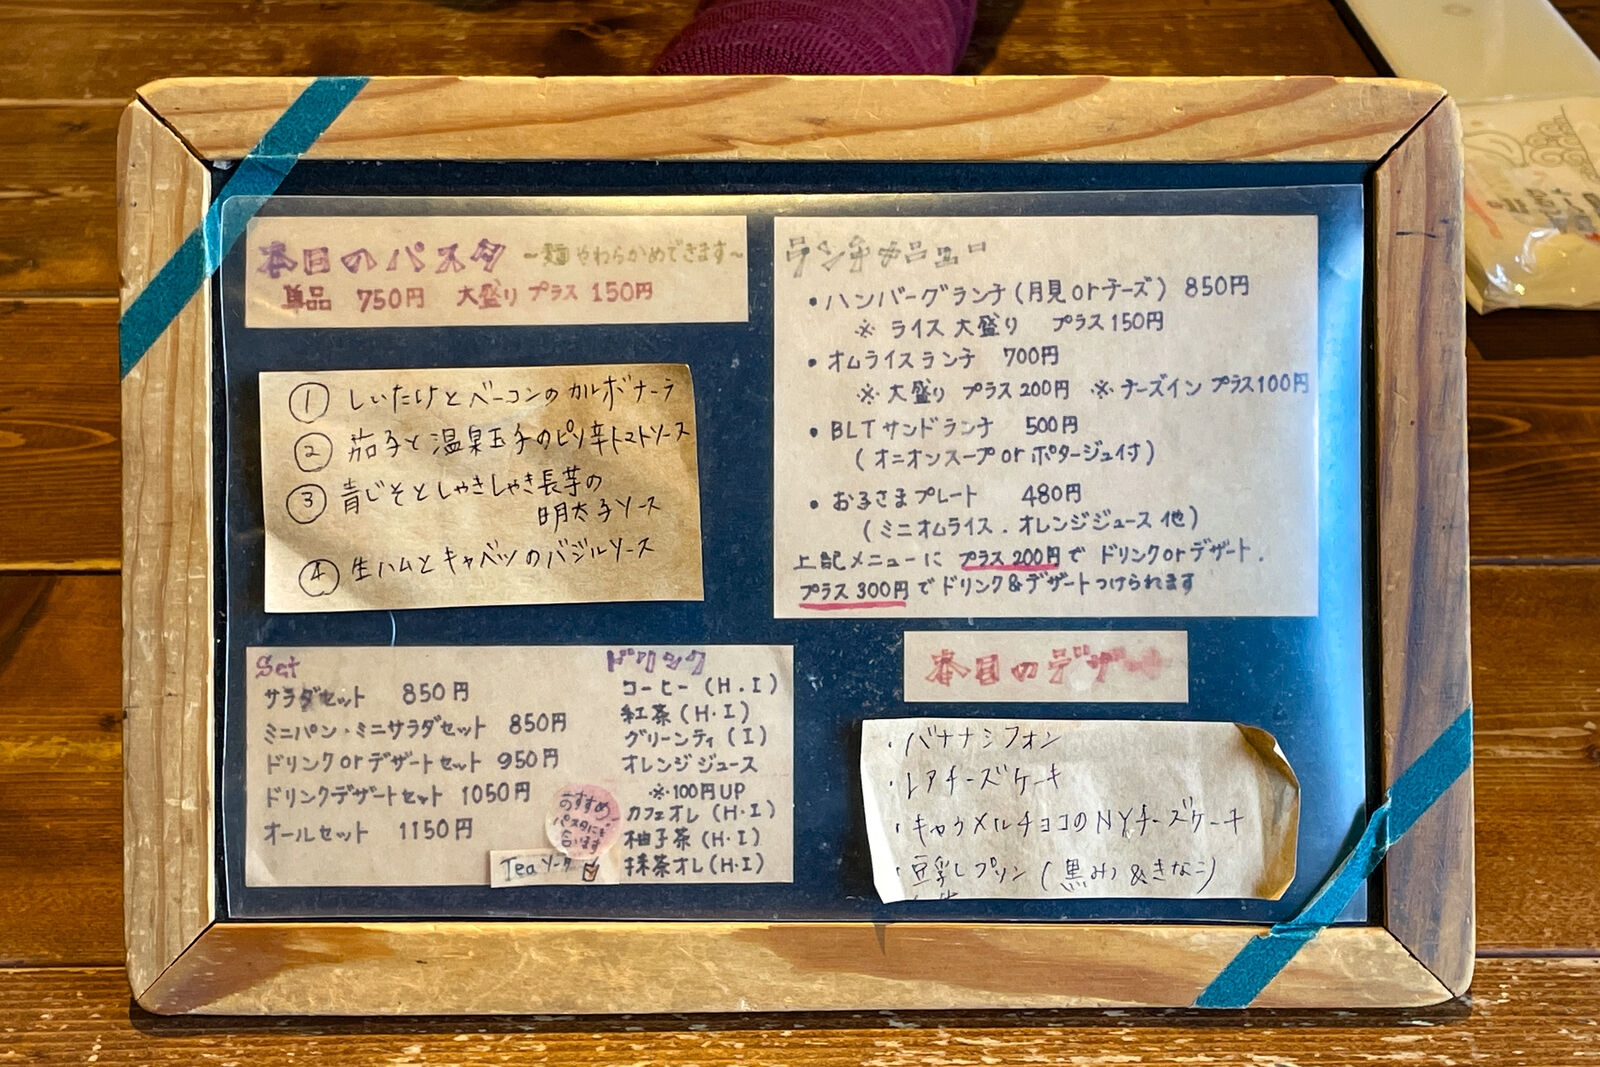 本日のパスタ ～麺やわらかめできます～
単品 750円 大盛り プラス 150円
① しいたけとベーコンのカルボナーラ
② 茄子と温泉玉子のピリ辛トマトソース
③ 青じそとしゃきしゃき長芋の
明太子ソース
④ 生ハムとキャベツのバジルソース
Set
サラダセット 850円
ミニパン・ミニサラダセット 850円
ドリンクorデザートセット 950円
ドリンクデザートセット 1050円
オールセット 1150円
おすすめ
パスタにも
合います
Tea ソーダ
ドリンク
コーヒー (H.I)
紅茶 (H.I)
グリーンティ (I)
オレンジジュース
※100円UP
カフェオレ (H.I)
柚子茶 (H.I)
抹茶オレ (H.I)
ランチメニュー
・ハンバーグランチ (月見orチーズ) 850円
※ ライス大盛り プラス150円
・オムライスランチ 700円
※大盛り プラス200円 ※チーズイン プラス100円
・BLTサンドランチ 500円
(オニオンスープorポタージュ付)
・お子さまプレート 480円
(ミニオムライス.オレンジジュース他)
上記メニューに プラス200円で ドリンクorデザート.
プラス300円でドリンク&デザートつけられます
本日のデザート
・バナナシフォン
・レアチーズケーキ
・キャラメルチョコのNYチーズケーキ
・豆乳プリン (黒みつ&きなこ)